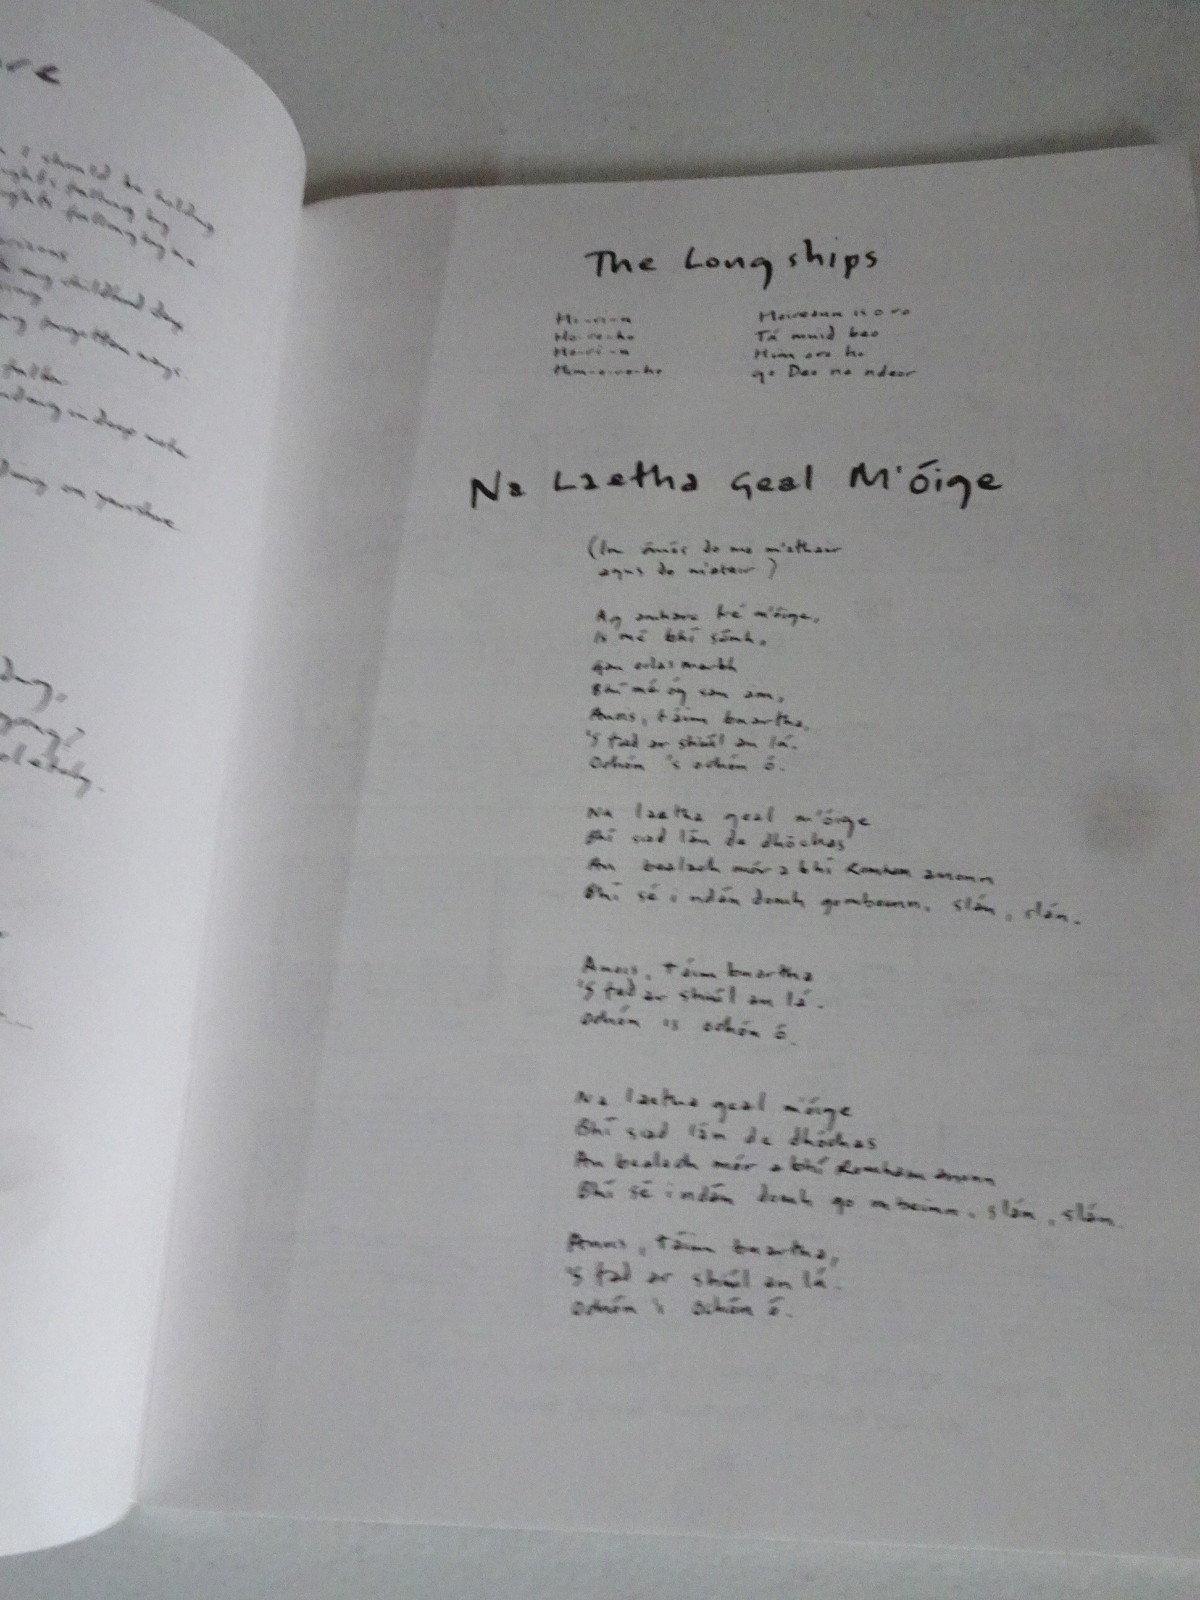 I should be holding
falling by
falling by me
my childhood days
forgotten ways
on your shore
The Longships
Hi-ri-u
Ho-ro-ho
Ho-ri-u
Him-o-ro-ho
Hoireann is o ro
Tá muid beo
Him oro ho
go Deo na ndeor
Na Laetha Geal M'óige
(In ómós do mo m'athair
agus do m'atair)
Ag amharc tré m'óige,
Is mé bhí sámh,
Gan eolas marbh
Bhí mé óg san am,
Anois, táim buartha,
'S fad ar shiúl an lá.
Ochón 's ochón ó.
Na laetha geal m'óige
Bhí siad lán de dhóchas
An bealach mór a bhí Romham anonn
Bhí sé i ndán domh go mbeinn, slán, slán.
Anois, táim buartha
'S fad ar shiúl an lá.
Ochón is ochón ó.
Na laetha geal m'óige
Bhí siad lán de dhóchas
An bealach mór a bhí Romham anonn
Bhí sé i ndán domh go mbeinn, slán, slán.
Anois, táim buartha,
'S fad ar shiúl an lá.
Ochón 's ochón ó.